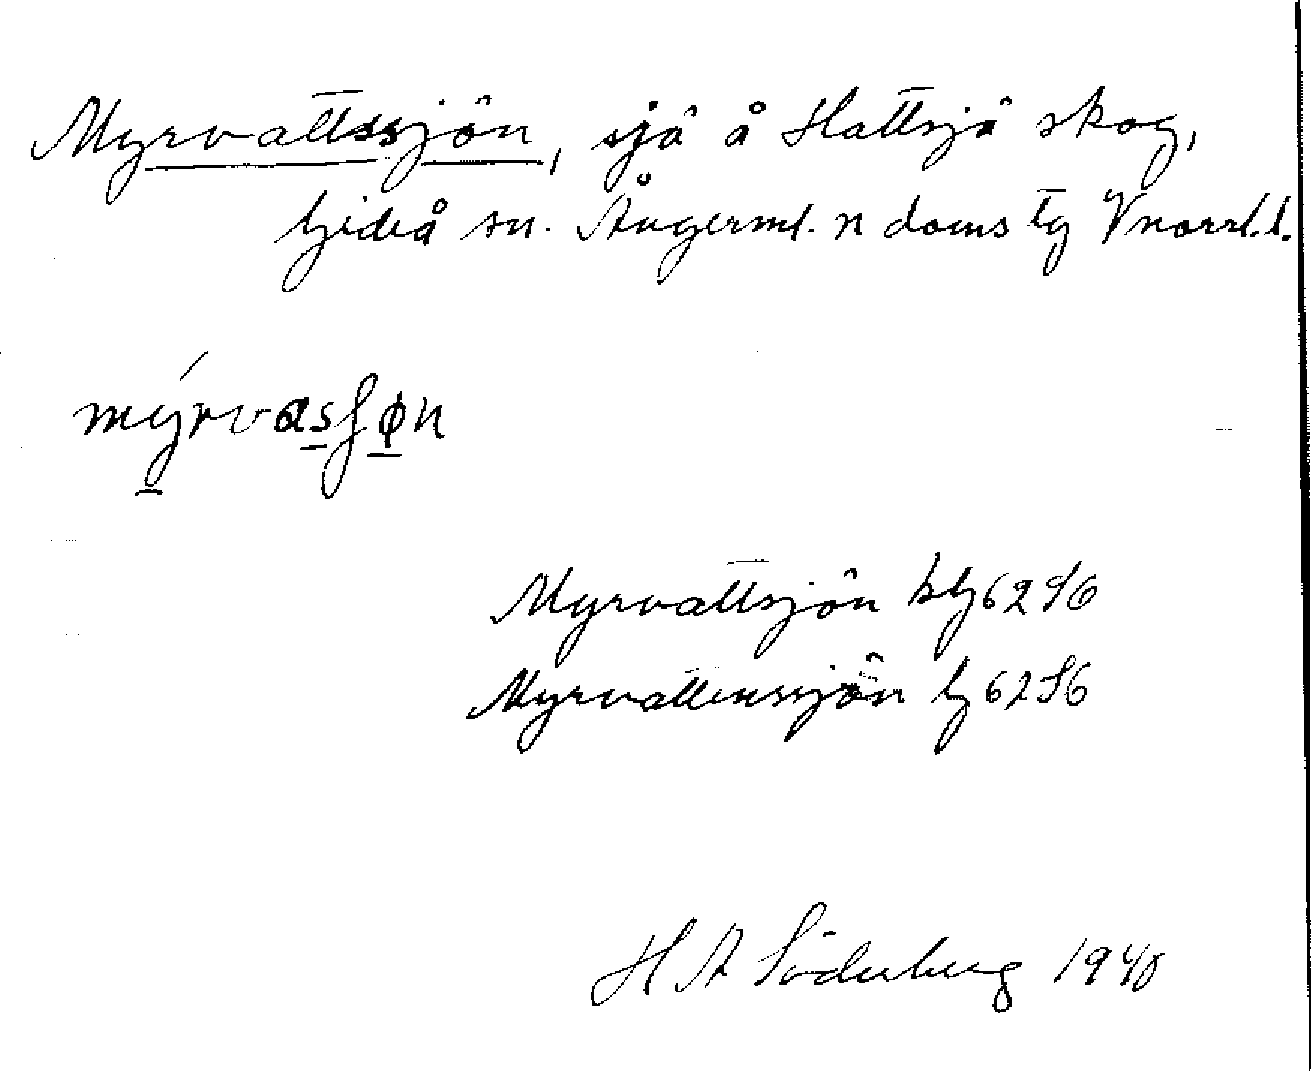 Myrvattssjön, sjö å Hattsjö skog,
Gideå sn. Ångerml. n doms tg Vnorrl. l.
mýrvasʃøn
Myrvattsjön 62 S6
Myrvattenssjön 62 S6
H A Söderberg 1940